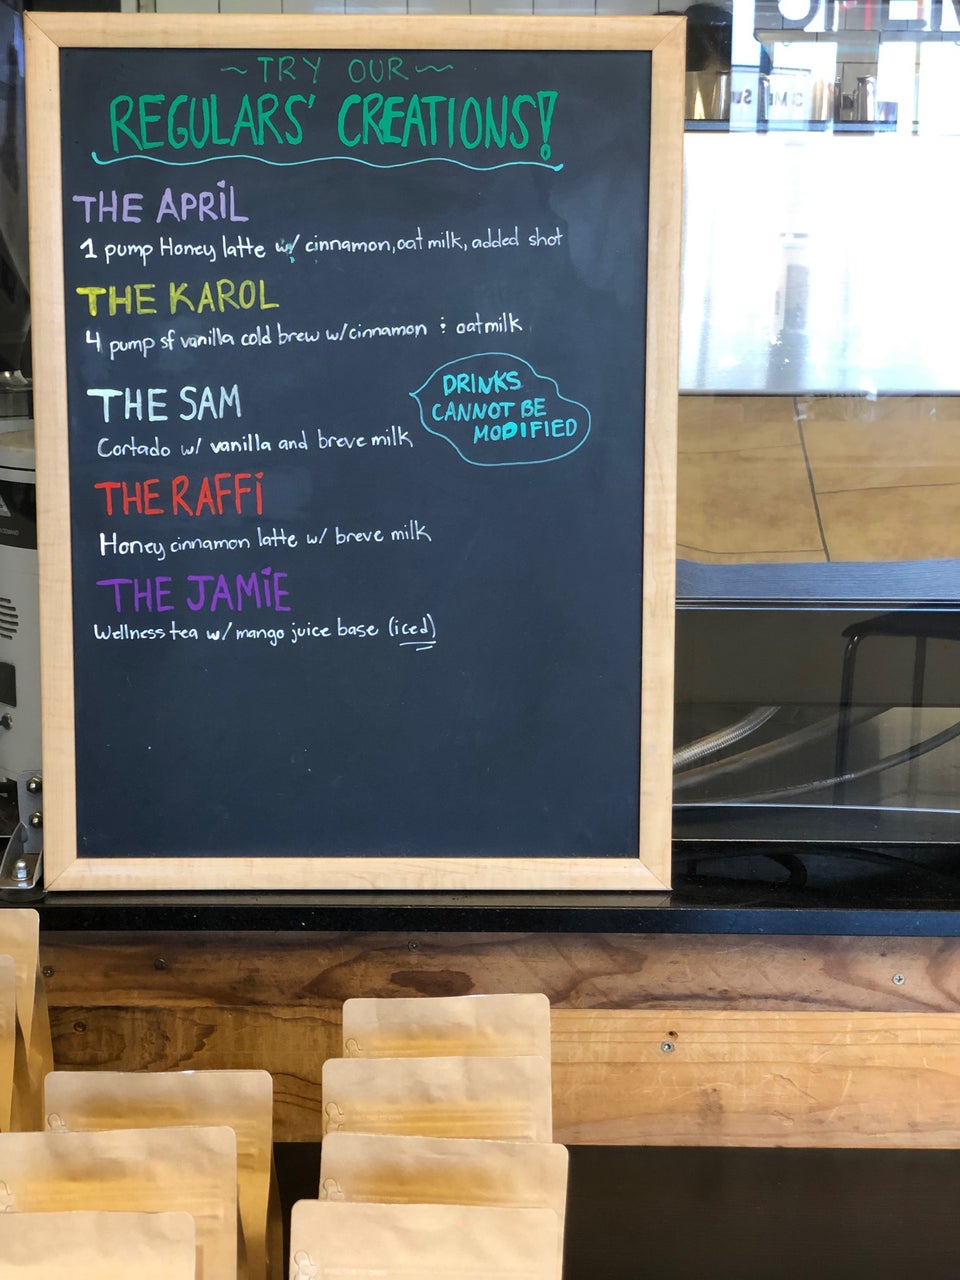 ~TRY OUR~
REGULARS' CREATIONS!
THE APRiL
1 pump Honey latte w/ cinnamon, oat milk, added shot
THE KAROL
4 pump sf vanilla cold brew w/cinnamon & oatmilk
THE SAM
Cortado w/ vanilla and breve milk
DRINKS
CANNOT BE
MODIFIED
THE RAFFi
Honey cinnamon latte w/ breve milk
THE JAMiE
Wellness tea w/ mango juice base (iced)